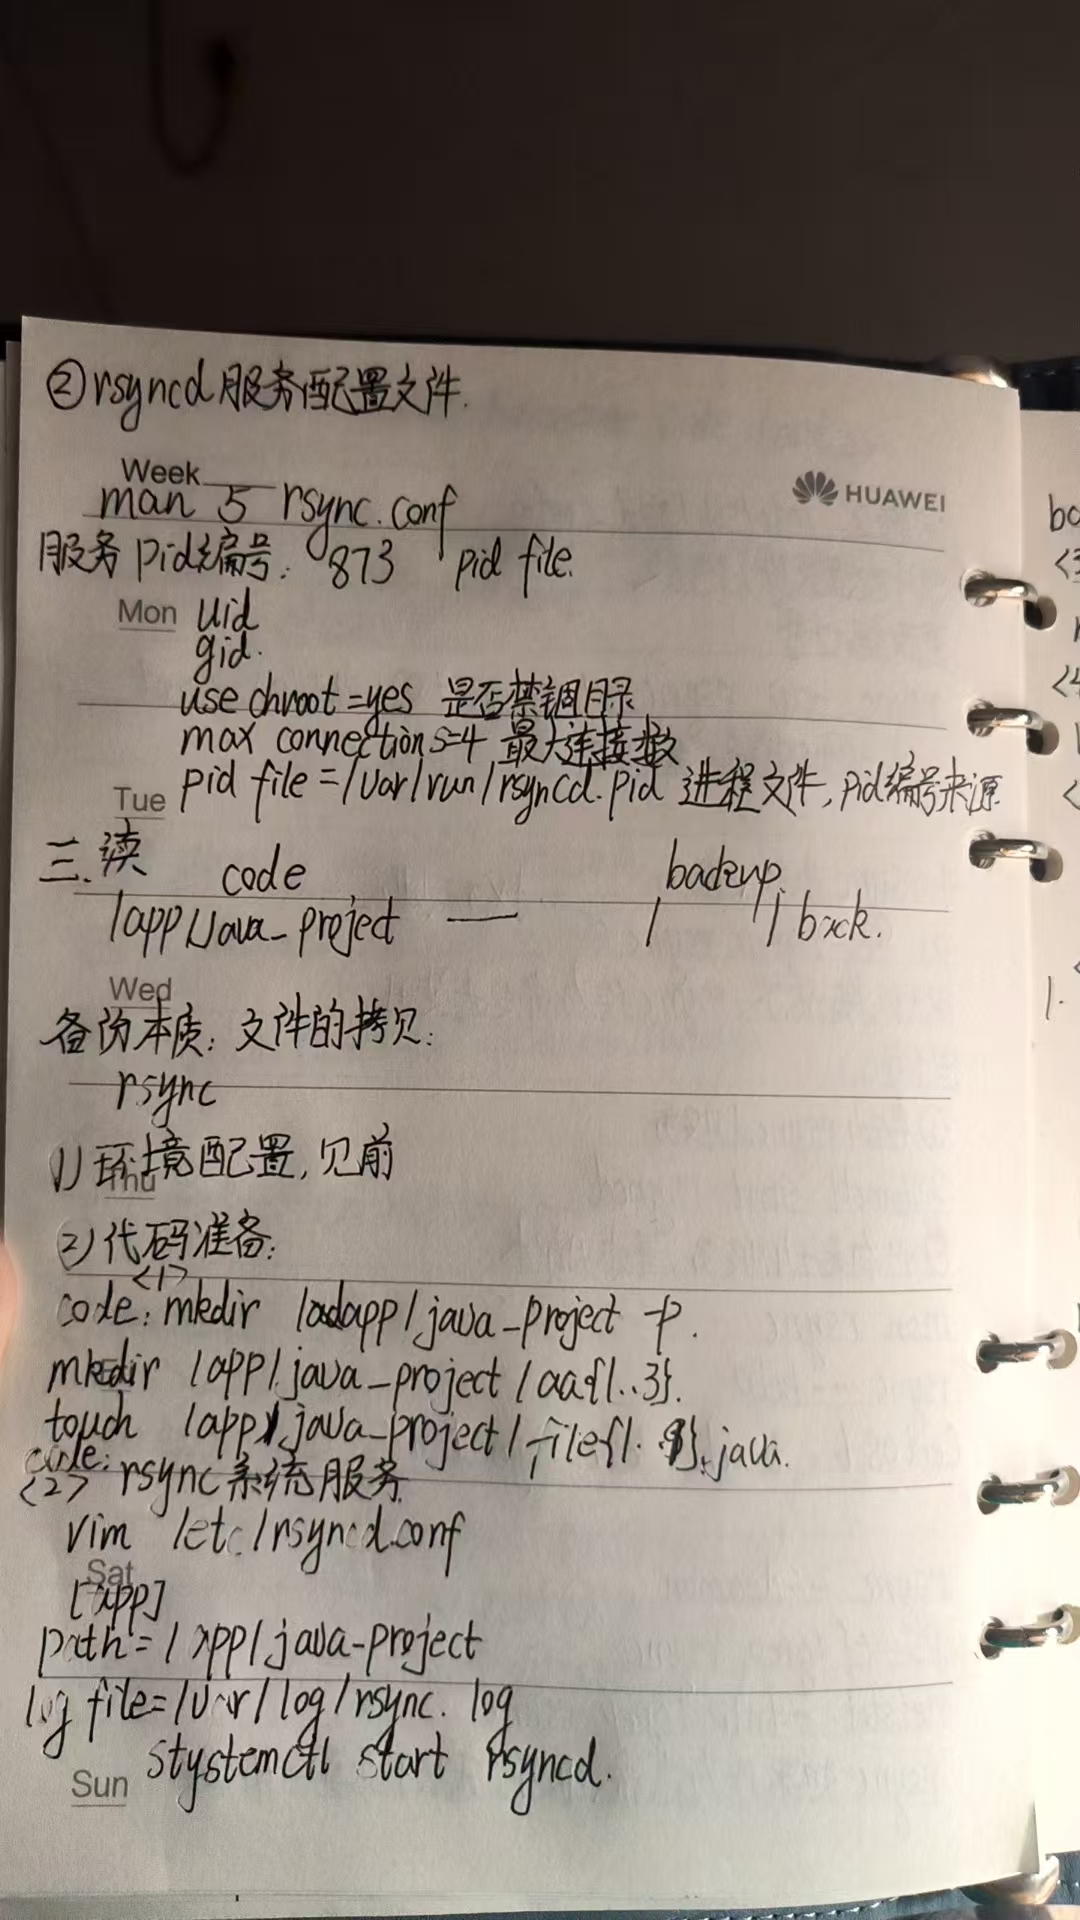 ②rsyncd服务配置文件.
Week
HUAWEI
man 5 rsync.conf
服务pid编号: 873 pid file.
Mon uid
gid.
use chroot=yes 是否禁锢目录
max connections=4 最大连接数
Tue pid file=/var/run/rsyncd.pid 进程文件,pid编号来源
三.读 code backup
/app/java_project — / / back.
Wed
备份本质: 文件的拷贝:
rsync
1) 环境配置,见前
Thu
2) 代码准备:
<1>
code: mkdir /adapp/java_project -p.
mkdir /app/java_project/aa{1..3}.
touch /app/java_project/file{1..9}.java.
code:
<2> rsync系统服务
vim /etc/rsyncd.conf
Sat
[app]
path=/app/java-project
log file=/var/log/rsync.log
stystemctl start rsyncd.
Sun
ba
1.